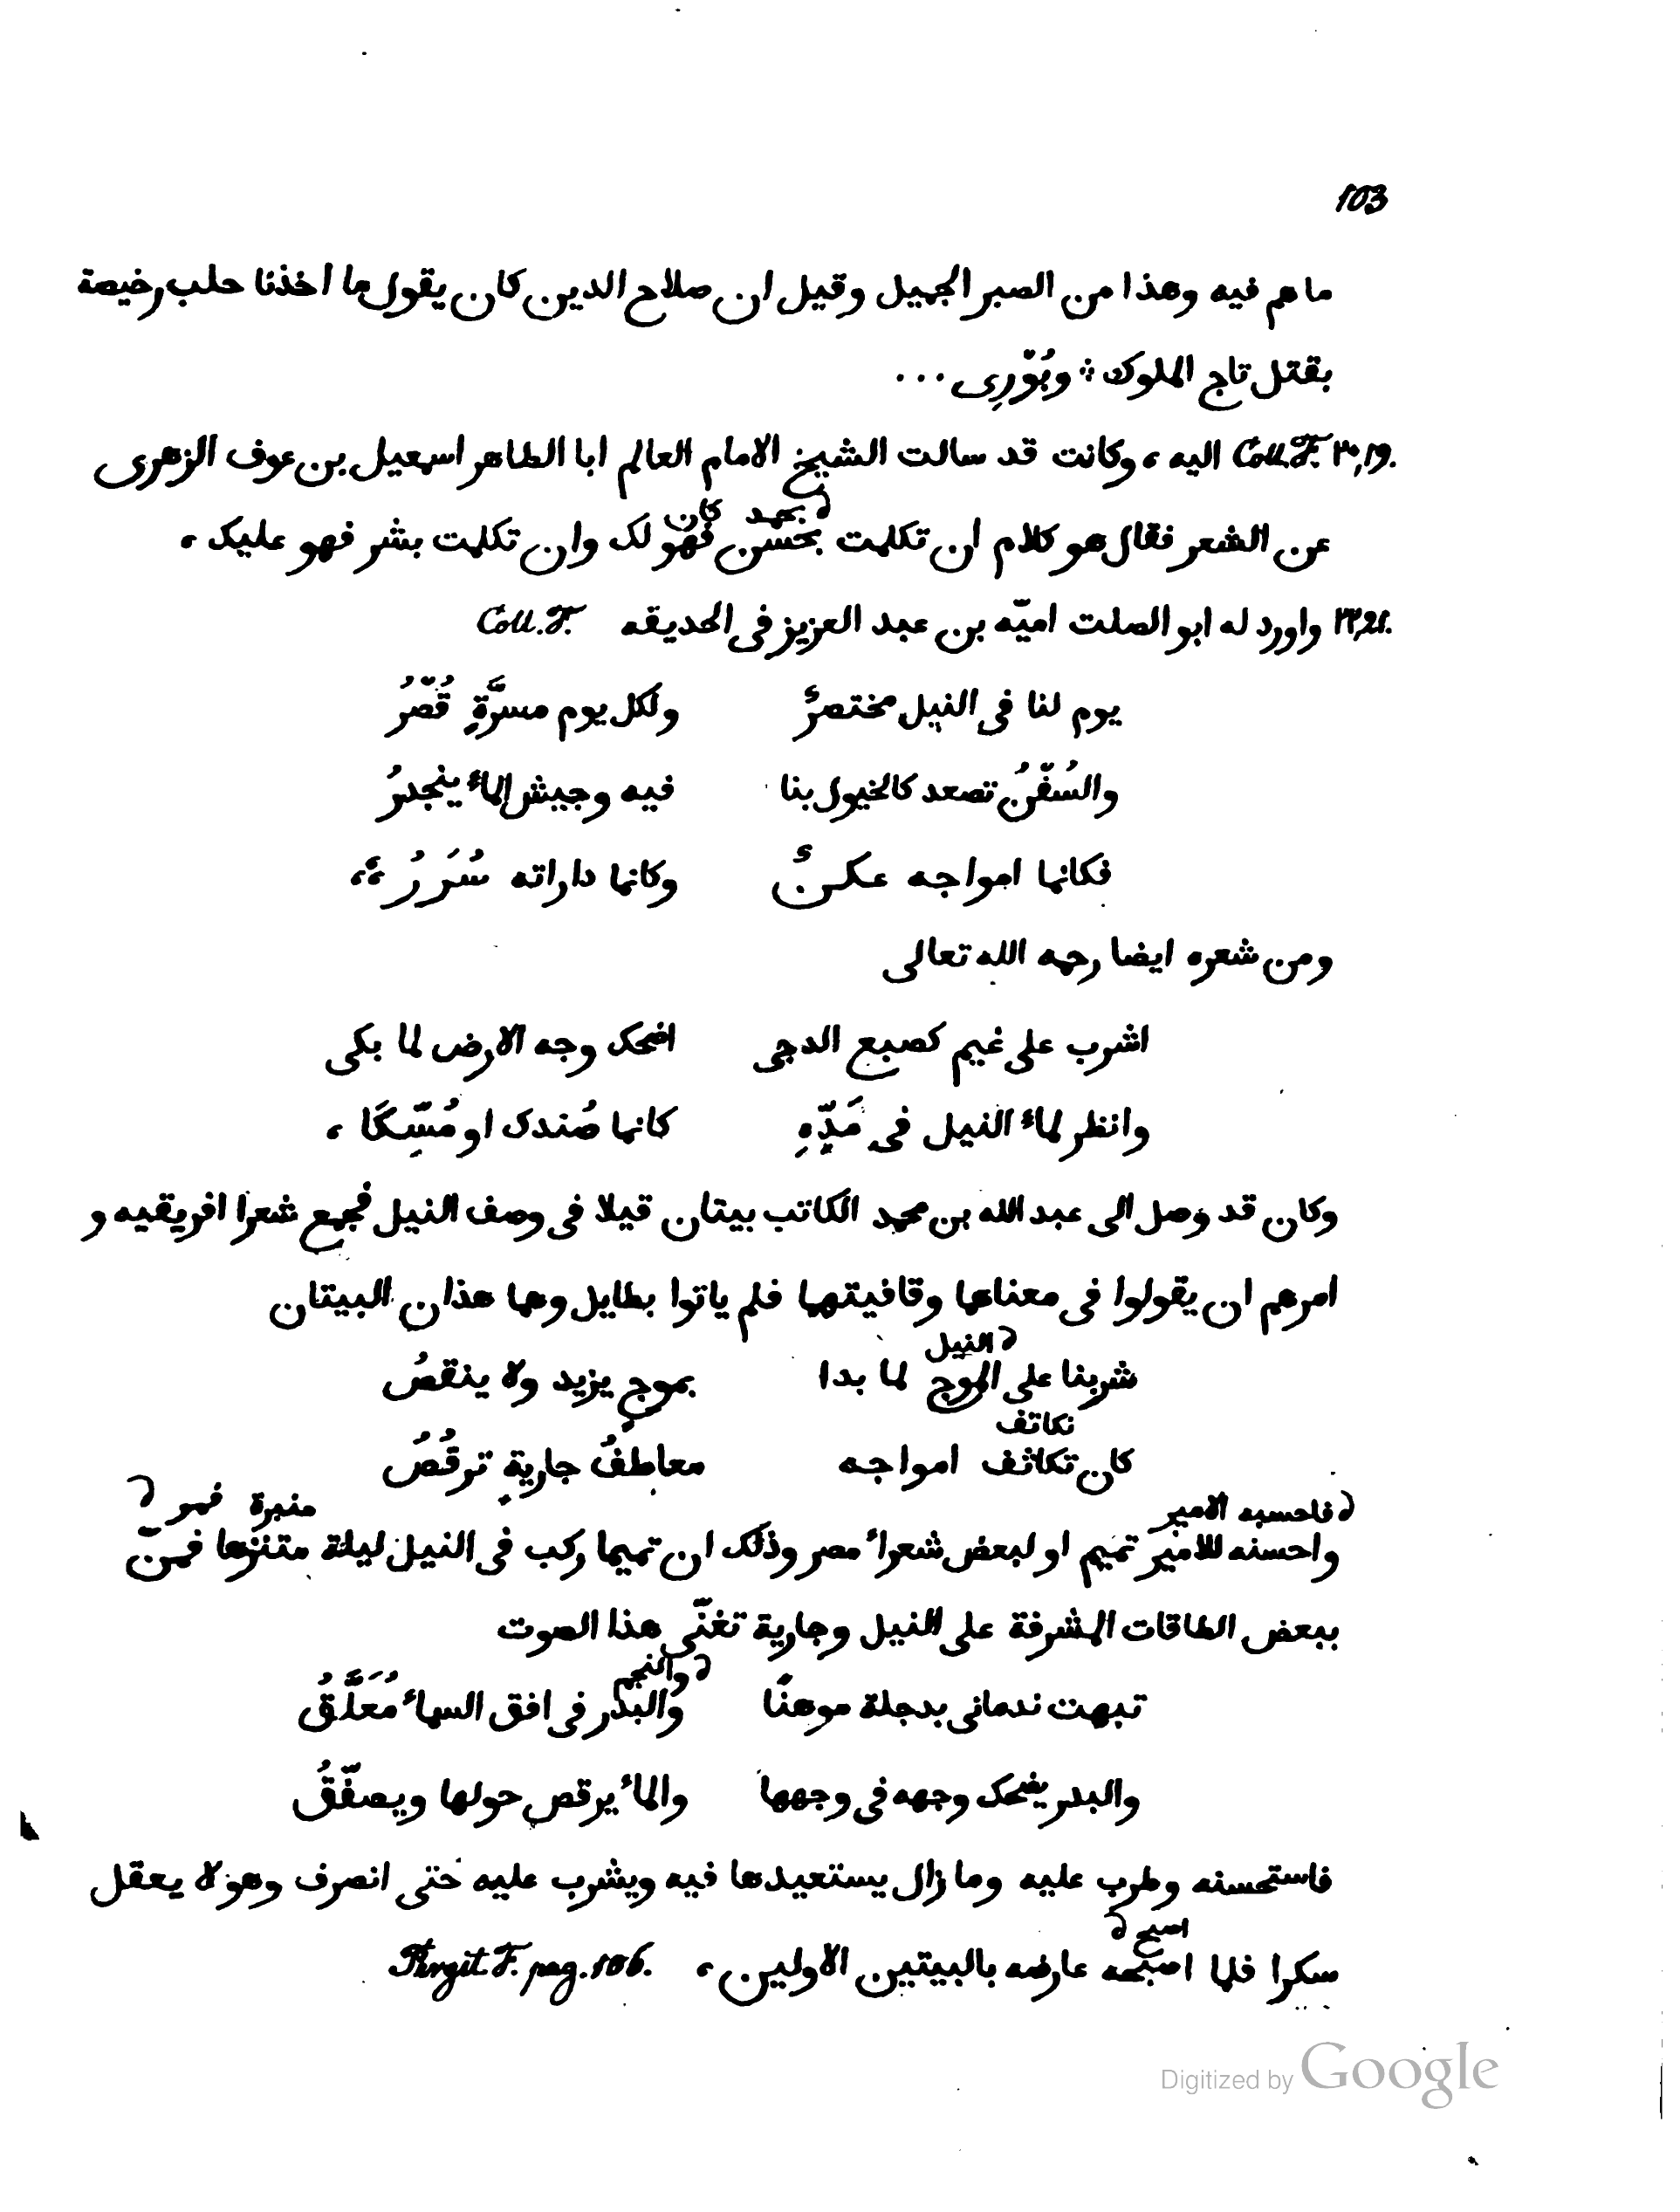 103
ما هم فيه وهذا من الصبر الجميل وقيل ان صلاح الدين كان يقول ما اخذنا حلب رخيصة
بقتل تاج الملوك ⁘ وبُوّرِى ...
٢٠,١٩. Coll. F. اليه ، وكانت قد سالت الشيخ الامام العالم ابا الطاهر اسمعيل بن عوف الزهرى
بجهد كان
عن الشعر فقال هو كلام ان تكلمت بحسن فهو لك وان تكلمت بشر فهو عليك ،
واورد له ابو الصلت اميّه بن عبد العزيز فى الحديقه Coll. F.
يوم لنا فى النيل مختصرٌ ولكل يوم مسرَّةٍ قُصّرُ
والسُفّنُ تصعد كالخيول بنا فيه وجيش الماء ينجدرُ
فكانما امواجه عكنٌ وكانما داراته سُرَرُ ،،
ومن شعره ايضا رحمه الله تعالى
اشرب على غيم كصبع الدجى اضحك وجه الارض لما بكى
وانظر لماء النيل فى مَدّهِ كانما صُندك او مُسّكَا ،
وكان قد وصل الى عبد الله بن محمد الكاتب بيتان قيلا فى وصف النيل فجمع شعرا افريقيه و
امرهم ان يقولوا فى معناها وقافيتهما فلم ياتوا بطايل وهما هذان البيتان
النيل
شربنا على الموج لما بدا بموجٍ يزيد ولا ينقصُ
تكاتف
كان تكاثف امواجه معاطفُ جاريةٍ ترقُصُ
فاحسبه الامير منبرة فمو
واحسنه للامير تميم او لبعض شعراء مصر وذلك ان تميما ركب فى النيل ليلة متنزها فمرّ
ببعض الطاقات المشرفة على النيل وجارية تغنّى هذا الصوت
والنجم
تبهت ندمانى بدجلة موهنًا والبدر فى افق السماء مُعَلَّقُ
والبدر يضحك وجهه فى وجهها والماء يرقص حولها ويصفّقُ
فاستحسنه وطرب عليه وما زال يستعيدها فيه ويشرب عليه حتى انصرف وهو لا يعقل
اصبح
سكرا فلما اصبحه عارضه بالبيتين الاولين ، Pergit. F. pag. 106.
Digitized by Google